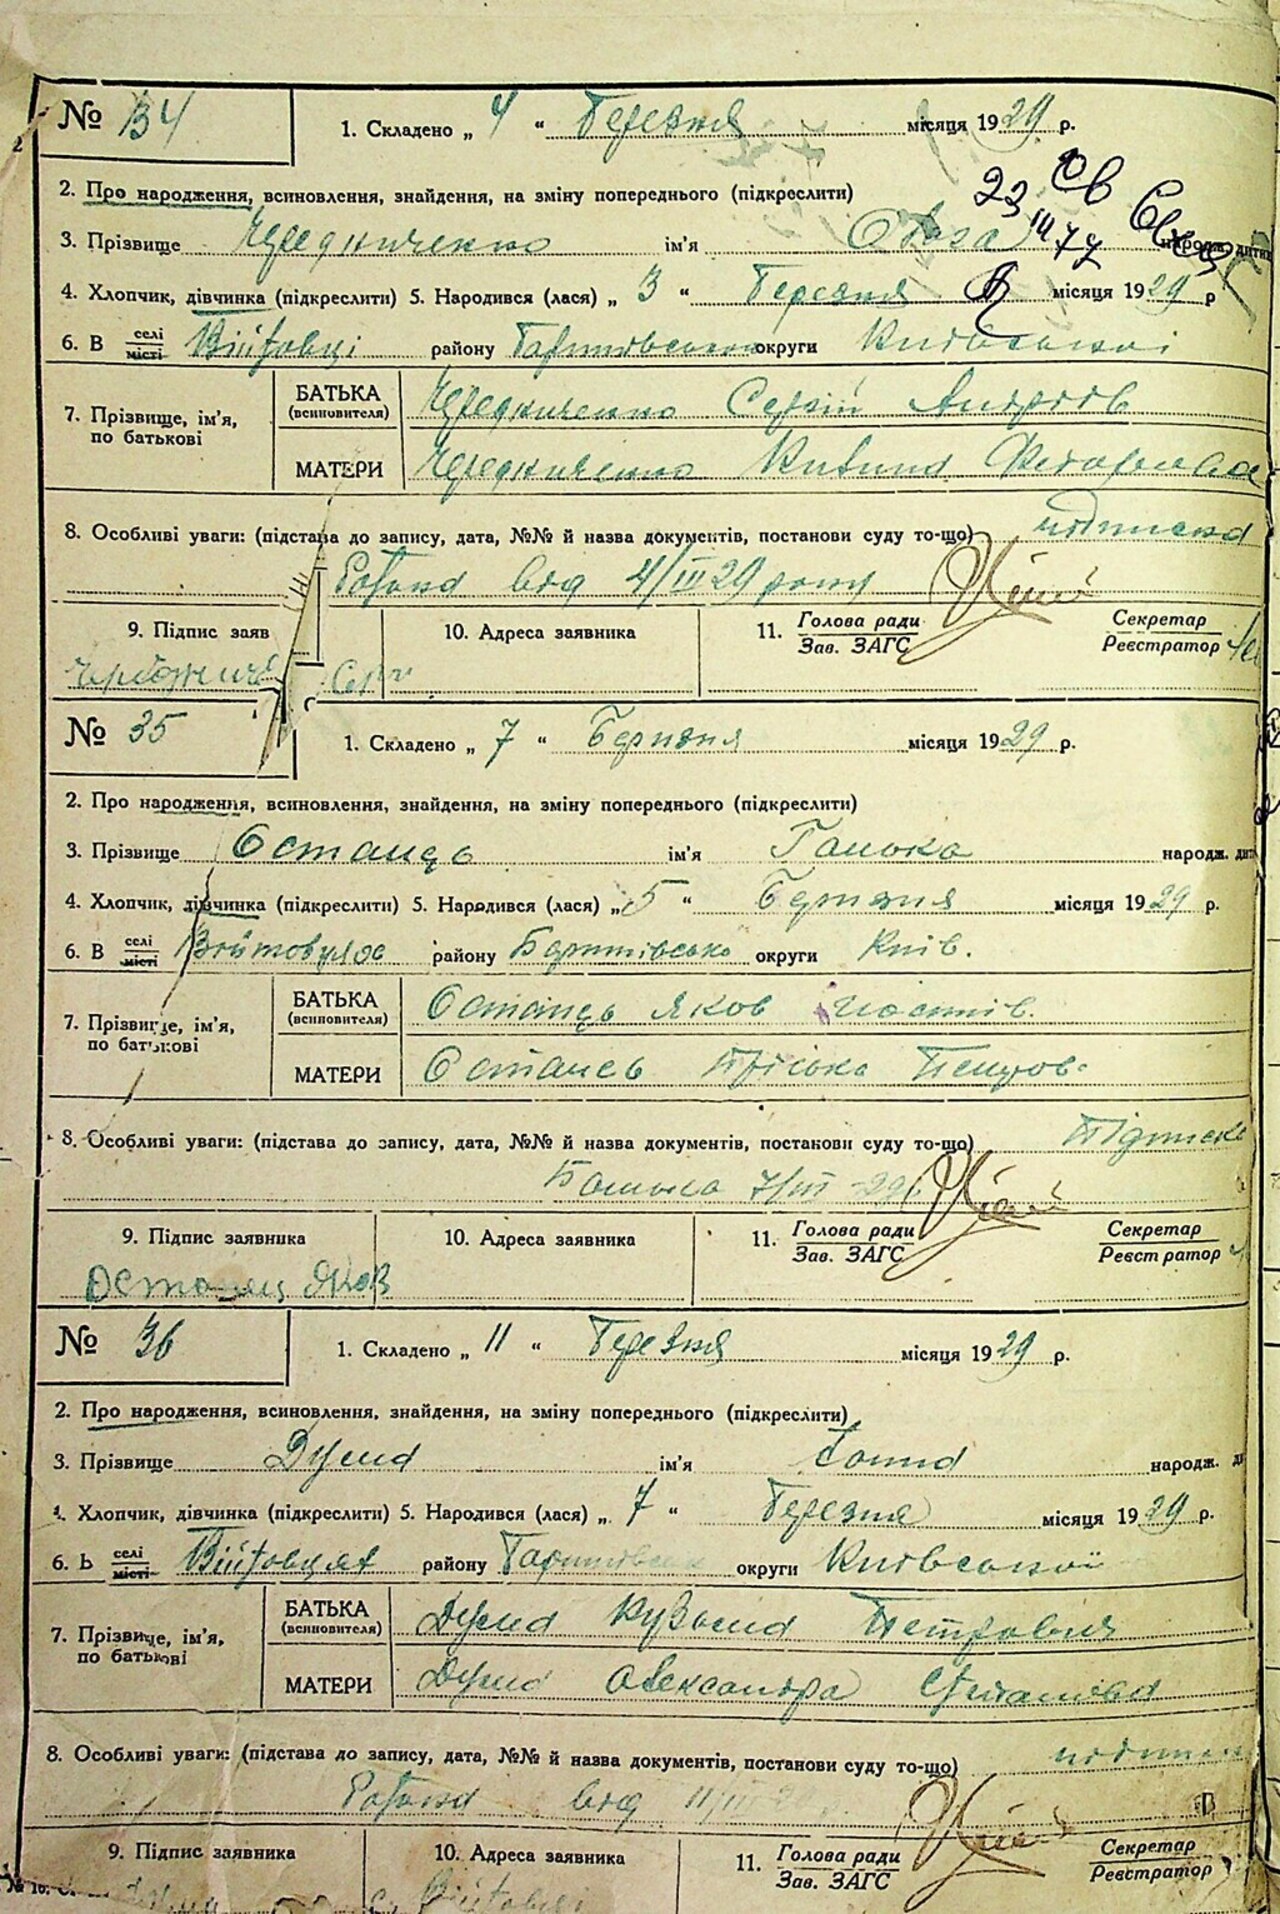 № 34
1. Складено „ 4 “ Березня місяця 1929 р.
2. Про народження, всиновлення, знайдення, на зміну попереднього (підкреслити)
3. Прізвище Чередниченко ім'я народж. дитин
23 III 77
4. Хлопчик, дівчинка (підкреслити) 5. Народився (лася) „ 3 “ Березня місяця 1929 р
6. В селі місті Війтовці району Баришівського округи Київської
7. Прізвище, ім'я, по батькові
БАТЬКА (всиновителя) Чередниченко Сергій Андріїв
МАТЕРИ Чередниченко
8. Особливі уваги: (підстава до запису, дата, №№ й назва документів, постанови суду то-що) підписка
Батька від 4/III 29 року
9. Підпис заяв 10. Адреса заявника 11. Голова ради Зав. ЗАГС Секретар Реєстратор
№ 35
1. Складено „ 7 “ Березня місяця 1929 р.
2. Про народження, всиновлення, знайдення, на зміну попереднього (підкреслити)
3. Прізвище Останець ім'я Ганька народж. дит
4. Хлопчик, дівчинка (підкреслити) 5. Народився (лася) „ 5 “ Березня місяця 1929 р.
6. В селі місті Войтовцях району Баришівсько округи Київ.
7. Прізвище, ім'я, по батькові
БАТЬКА (всиновителя) Останець Яков
МАТЕРИ Останець Пріська Петров.
8. Особливі уваги: (підстава до запису, дата, №№ й назва документів, постакови суду то-що) Підписка
Батька 7/III 29
9. Підпис заявника 10. Адреса заявника 11. Голова ради Зав. ЗАГС Секретар Реєстратор
Останец Яков
№ 36
1. Складено „ 11 “ Березня місяця 1929 р.
2. Про народження, всиновлення, знайдення, на зміну попереднього (підкреслити)
3. Прізвище Дума ім'я народж. ди
4. Хлопчик, дівчинка (підкреслити) 5. Народився (лася) „ 7 “ Березня місяця 1929 р.
6. В селі місті Війтовцях району Баришівськ округи Київської
7. Прізвище, ім'я, по батькові
БАТЬКА (всиновителя) Дума Кузьма Петрович
МАТЕРИ Дума Олександра Степанівна
8. Особливі уваги: (підстава до запису, дата, №№ й назва документів, постанови суду то-що)
Батька від 11/III
9. Підпис заявника 10. Адреса заявника 11. Голова ради Зав. ЗАГС Секретар Реєстратор
Війтовці